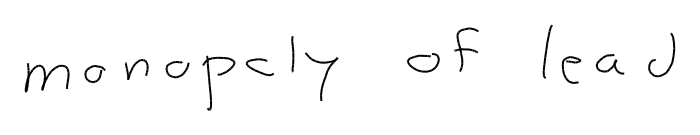 monopoly of lead